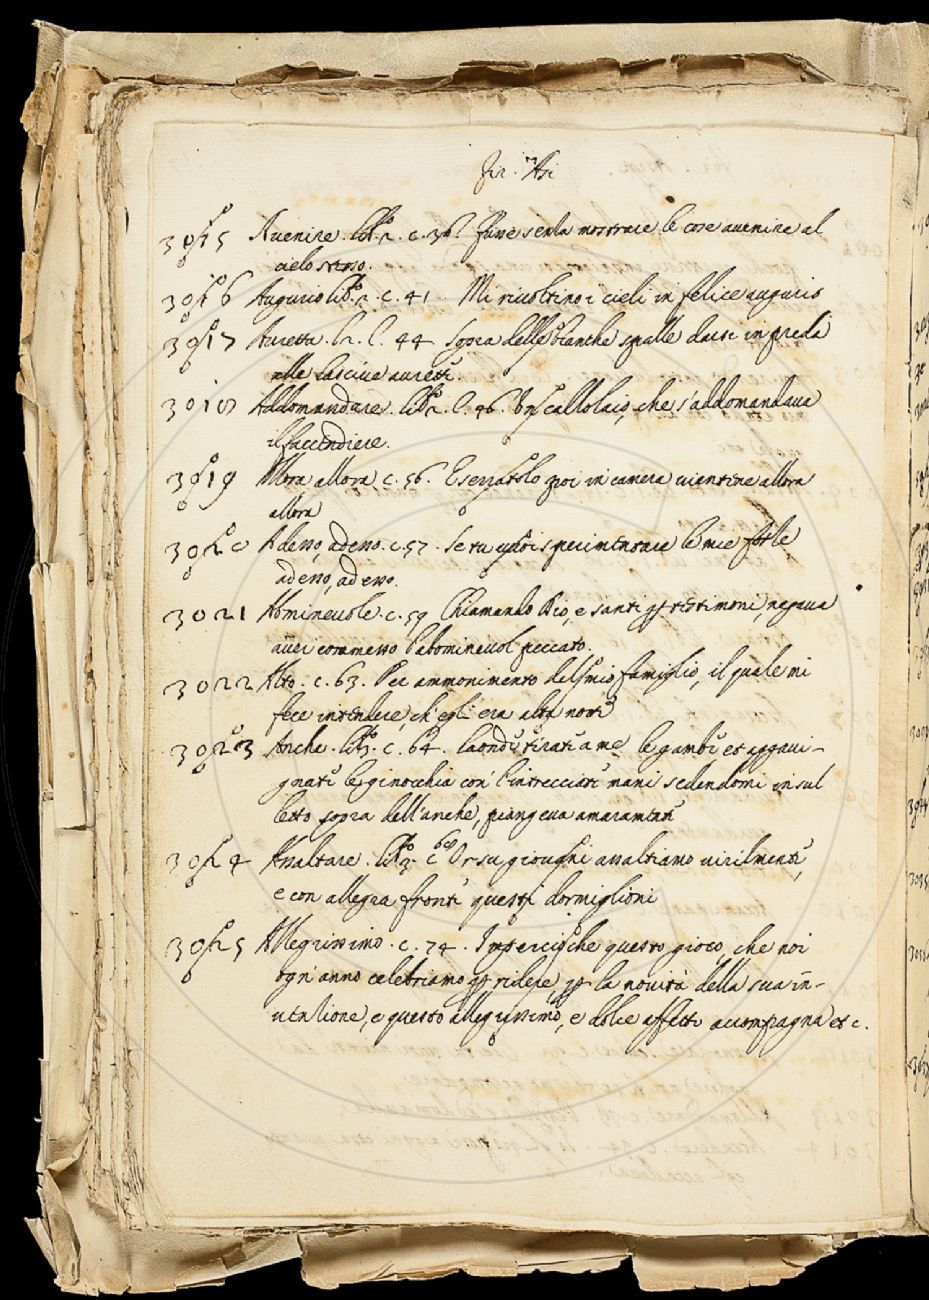 Fir. Asi
3015 Auenire. lib.o 2. c. 36. senza mostrare le cose auenire al
cielo stesso.
3016 Augurio lib.o 2. c. 41. Mi riuoltino i cieli in felice augurio
3017 Auretta. l. 2. c. 44 sopra delle bianche spalle darsi in preda
alle lasciue aurette.
3018 Addomandare. lib.o 2. c. 46. calzolaio, che s'addomandaua
il faccendiere.
3019 Allora allora c. 56. E serratolo poi in camera allora
allora
3020 Adesso, adesso. c. 57. Se tu vuoi sperimentare le mie forze
adesso, adesso.
3021 Abomineuole. c. 59 Chiamando Dio, e santi p testimoni, negaua
auer commesso l'abomineuol peccato.
3022 Alto. c. 63. Per ammonimento del mio famiglio, il quale mi
fece intendere, ch'egli era alta notte
3023 Anche. lib.o 3. c. 64. laonde tiratiame le gambe et aggaui-
gnate le ginocchia con l'intrecciate mani sedendomi in sul
letto sopra dell'anche, piangeua amaramente
3024 Assaltare. lib.o 3. c. 60 Orsu giouani assaltiamo uirilmente,
e con allegra fronte questi dormiglioni
3025 Allegrissimo. c. 74. Imperciòche questo gioco, che noi
ogni anno celebriamo p ridere, p la nouità della sua in-
uenzione, e questo allegrissimo, e dolce affetto accompagna et c.